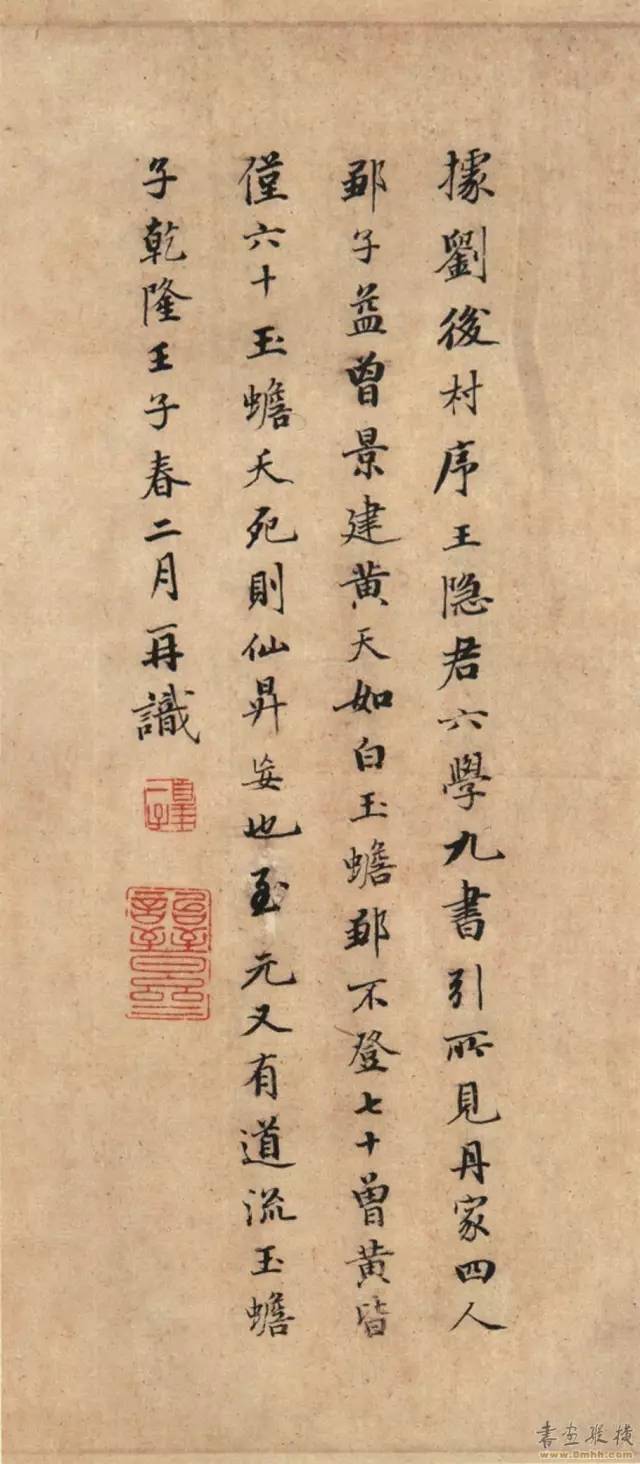 據劉後村序王隐君六學九書引所見丹家四人
鄒子益曾景建黃天如白玉蟾鄒不登七十曾黃皆
僅六十玉蟾夭死則仙昇妄也至元又有道流玉蟾
子乾隆壬子春二月再識
書画縱橫
www.8mhh.com